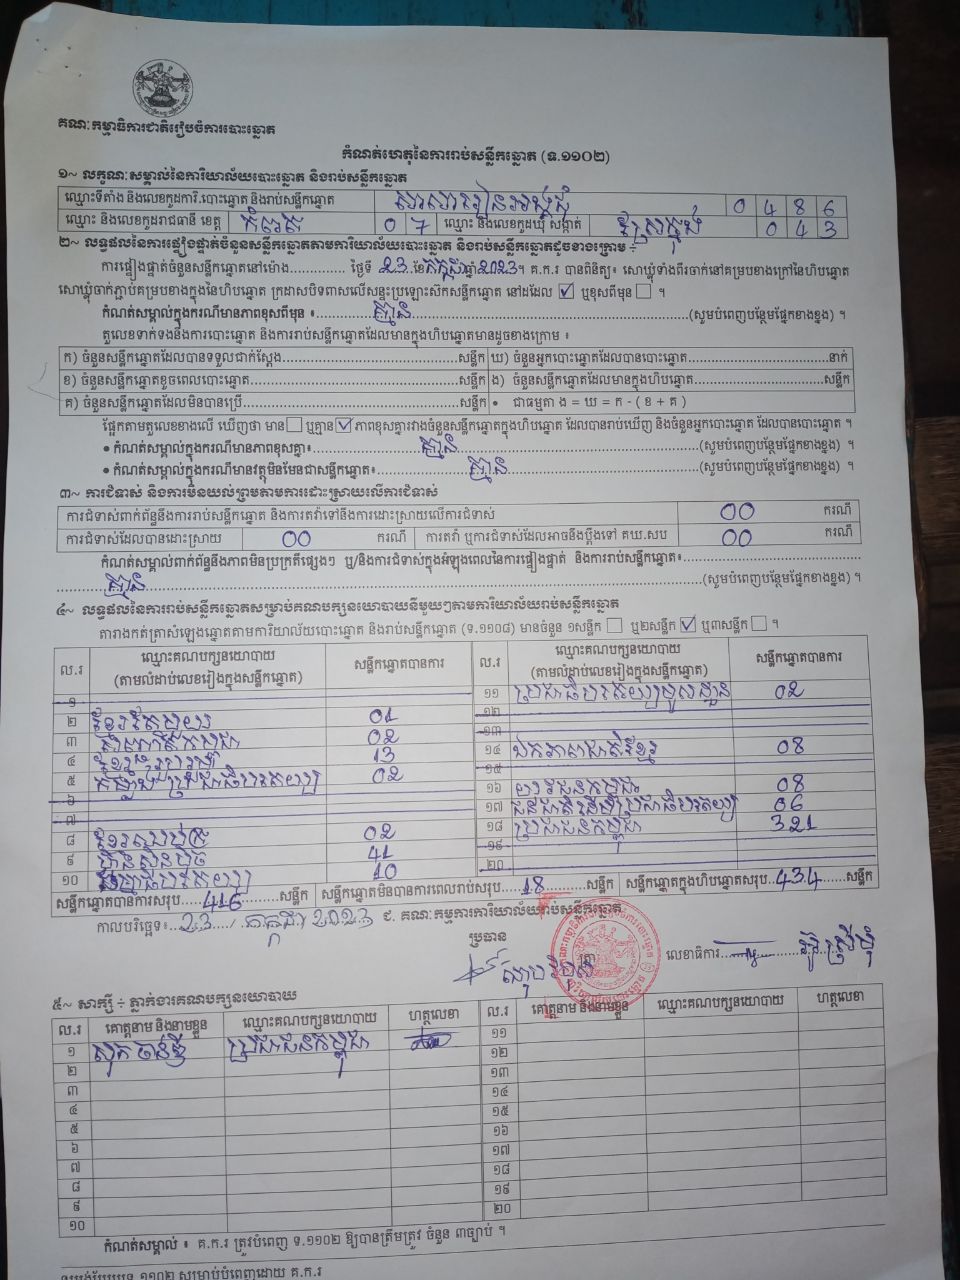 គណៈកម្មាធិការជាតិរៀបចំការបោះឆ្នោត
កំណត់ហេតុនៃការរាប់សន្លឹកឆ្នោត (ទ.១១០២)
១~ លក្ខណៈសម្គាល់នៃការិយាល័យបោះឆ្នោត និងរាប់សន្លឹកឆ្នោត
ឈ្មោះទីតាំង និងលេខកូដការិ.បោះឆ្នោត និងរាប់សន្លឹកឆ្នោត សាលារៀន 0486
ឈ្មោះ និងលេខកូដរាជធានី ខេត្ត កំពត 07 ឈ្មោះ និងលេខកូដឃុំ សង្កាត់ 043
២~ លទ្ធផលនៃការផ្ទៀងផ្ទាត់ចំនួនសន្លឹកឆ្នោតតាមការិយាល័យបោះឆ្នោត និងរាប់សន្លឹកឆ្នោតដូចខាងក្រោម ÷
ការផ្ទៀងផ្ទាត់ចំនួនសន្លឹកឆ្នោតនៅម៉ោង............. ថ្ងៃទី 23 ខែ កក្កដា ឆ្នាំ 2023។ គ.ក.រ បានពិនិត្យ៖ សោឃ្លុំទាំងពីរចាក់នៅគម្របខាងក្រៅនៃហិបឆ្នោត
សោឃ្លុំចាក់ភ្ជាប់គម្របខាងក្នុងនៃហិបឆ្នោត ក្រដាសបិទពាសលើសន្ទះប្រឡោះស៊កសន្លឹកឆ្នោត នៅដដែល ☑ ឬខុសពីមុន ☐ ។
កំណត់សម្គាល់ក្នុងករណីមានភាពខុសពីមុន ៖ គ្មាន (សូមបំពេញបន្ថែមផ្នែកខាងខ្នង) ។
តួលេខទាក់ទងនឹងការបោះឆ្នោត និងការរាប់សន្លឹកឆ្នោតដែលមានក្នុងហិបឆ្នោតមានដូចខាងក្រោម ៖
ក) ចំនួនសន្លឹកឆ្នោតដែលបានទទួលជាក់ស្តែង............សន្លឹក ឃ) ចំនួនអ្នកបោះឆ្នោតដែលបានបោះឆ្នោត............នាក់
ខ) ចំនួនសន្លឹកឆ្នោតខូចពេលបោះឆ្នោត............សន្លឹក ង) ចំនួនសន្លឹកឆ្នោតដែលមានក្នុងហិបឆ្នោត............សន្លឹក
គ) ចំនួនសន្លឹកឆ្នោតដែលមិនបានប្រើ............សន្លឹក • ជាធម្មតា ង = ឃ = ក - ( ខ + គ )
ផ្អែកតាមតួលេខខាងលើ ឃើញថា មាន ☐ ឬគ្មាន ☑ ភាពខុសគ្នារវាងចំនួនសន្លឹកឆ្នោតក្នុងហិបឆ្នោត ដែលបានរាប់ឃើញ និងចំនួនអ្នកបោះឆ្នោត ដែលបានបោះឆ្នោត ។
• កំណត់សម្គាល់ក្នុងករណីមានភាពខុសគ្នា៖ គ្មាន (សូមបំពេញបន្ថែមផ្នែកខាងខ្នង) ។
• កំណត់សម្គាល់ក្នុងករណីមានវត្ថុមិនមែនជាសន្លឹកឆ្នោត៖ គ្មាន (សូមបំពេញបន្ថែមផ្នែកខាងខ្នង) ។
៣~ ការជំទាស់ និងការមិនយល់ព្រមតាមការដោះស្រាយលើការជំទាស់
ការជំទាស់ពាក់ព័ន្ធនឹងការរាប់សន្លឹកឆ្នោត និងការតវ៉ាទៅនឹងការដោះស្រាយលើការជំទាស់ 00 ករណី
ការជំទាស់ដែលបានដោះស្រាយ 00 ករណី ការតវ៉ា ឬការជំទាស់ដែលអាចនឹងប្តឹងទៅ គឃ.សប 00 ករណី
កំណត់សម្គាល់ពាក់ព័ន្ធនឹងភាពមិនប្រក្រតីផ្សេងៗ ឬ/និងការជំទាស់ក្នុងអំឡុងពេលនៃការផ្ទៀងផ្ទាត់ និងការរាប់សន្លឹកឆ្នោត៖
គ្មាន (សូមបំពេញបន្ថែមផ្នែកខាងខ្នង) ។
៤~ លទ្ធផលនៃការរាប់សន្លឹកឆ្នោតសម្រាប់គណបក្សនយោបាយនីមួយៗតាមការិយាល័យរាប់សន្លឹកឆ្នោត
តារាងកត់ត្រាសំឡេងឆ្នោតតាមការិយាល័យបោះឆ្នោត និងរាប់សន្លឹកឆ្នោត (ទ.១១០៨) មានចំនួន ១សន្លឹក ☐ ឬ២សន្លឹក ☑ ឬ៣សន្លឹក ☐ ។
ល.រ ឈ្មោះគណបក្សនយោបាយ (តាមលំដាប់លេខរៀងក្នុងសន្លឹកឆ្នោត) សន្លឹកឆ្នោតបានការ ល.រ ឈ្មោះគណបក្សនយោបាយ (តាមលំដាប់លេខរៀងក្នុងសន្លឹកឆ្នោត) សន្លឹកឆ្នោតបានការ
១ ១១ ប្រជាធិបតេយ្យមូលដ្ឋាន 02
២ ខ្មែរតែមួយ 01 ១២
៣ 02 ១៣
៤ 13 ១៤ ឯកភាពជាតិខ្មែរ 08
៥ កម្លាំងប្រជាធិបតេយ្យ 02 ១៥
៦ ១៦ យុវជនកម្ពុជា 08
៧ ១៧ ជនជាតិដើមប្រជាធិបតេយ្យ 06
៨ 02 ១៨ ប្រជាជនកម្ពុជា 321
៩ ហ្វ៊ុនស៊ិនប៉ិច 41 ១៩
១០ ធម្មាធិបតេយ្យ 10 ២០
សន្លឹកឆ្នោតបានការសរុប 416 សន្លឹក សន្លឹកឆ្នោតមិនបានការពេលរាប់សរុប 18 សន្លឹក សន្លឹកឆ្នោតក្នុងហិបឆ្នោតសរុប 434 សន្លឹក
កាលបរិច្ឆេទ៖ 23 / កក្កដា / 2023 ជ. គណៈកម្មការការិយាល័យរាប់សន្លឹកឆ្នោត
ប្រធាន
លេខាធិការ
៥~ សាក្សី ÷ ភ្នាក់ងារគណបក្សនយោបាយ
ល.រ គោត្តនាម និងនាមខ្លួន ឈ្មោះគណបក្សនយោបាយ ហត្ថលេខា ល.រ គោត្តនាម និងនាមខ្លួន ឈ្មោះគណបក្សនយោបាយ ហត្ថលេខា
១ ប្រជាជនកម្ពុជា ១១
២ ១២
៣ ១៣
៤ ១៤
៥ ១៥
៦ ១៦
៧ ១៧
៨ ១៨
៩ ១៩
១០ ២០
កំណត់សម្គាល់ ៖ គ.ក.រ ត្រូវបំពេញ ទ.១១០២ ឱ្យបានត្រឹមត្រូវ ចំនួន ៣ច្បាប់ ។
ទម្រង់បែបបទ ១១០២ សម្រាប់បំពេញដោយ គ.ក.រ